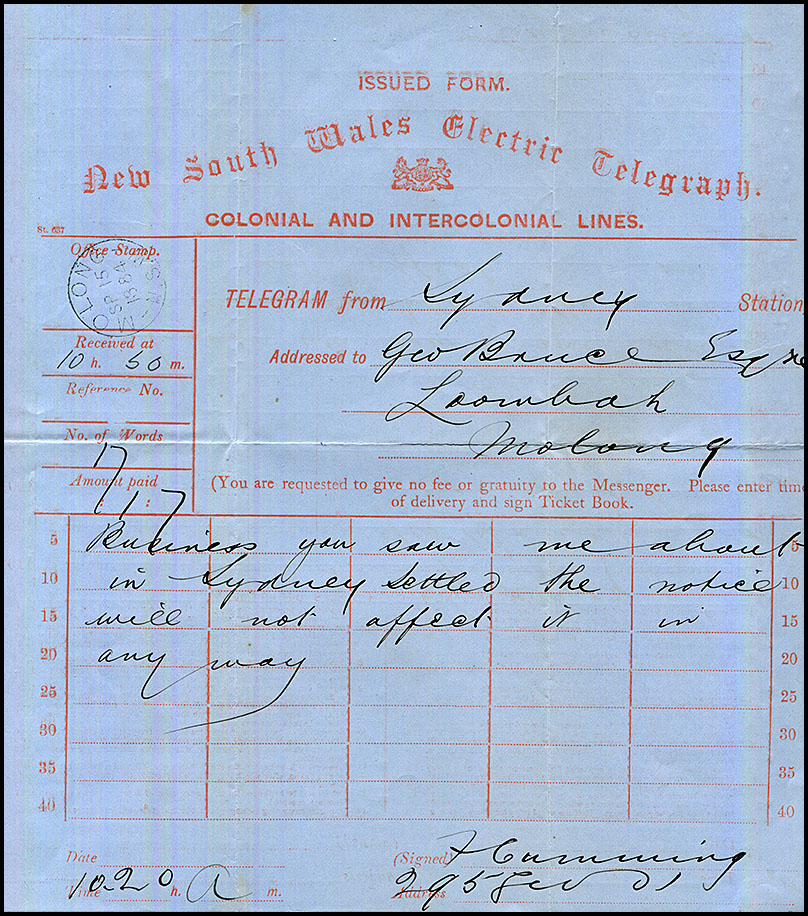 ISSUED FORM.
New South Wales Electric Telegraph.
COLONIAL AND INTERCOLONIAL LINES.
St. 637
Office Stamp.
MOLONG N.S.W
SP 15
1884
TELEGRAM from Sydney Station,
Received at
10 h. 50 m.
Addressed to Geo Bruce Esqre
Reference No.
Loombah
No. of Words
17
Molong
Amount paid
: 1 : 7
(You are requested to give no fee or gratuity to the Messenger. Please enter time
of delivery and sign Ticket Book.
5 Business you saw me about 5
10 in Sydney settled the notice 10
15 will not affect it in 15
20 any way 20
25 25
30 30
35 35
40 40
Date
(Signed) F Cumming
Time 10.20 h. A m.
Address 295 Geo St